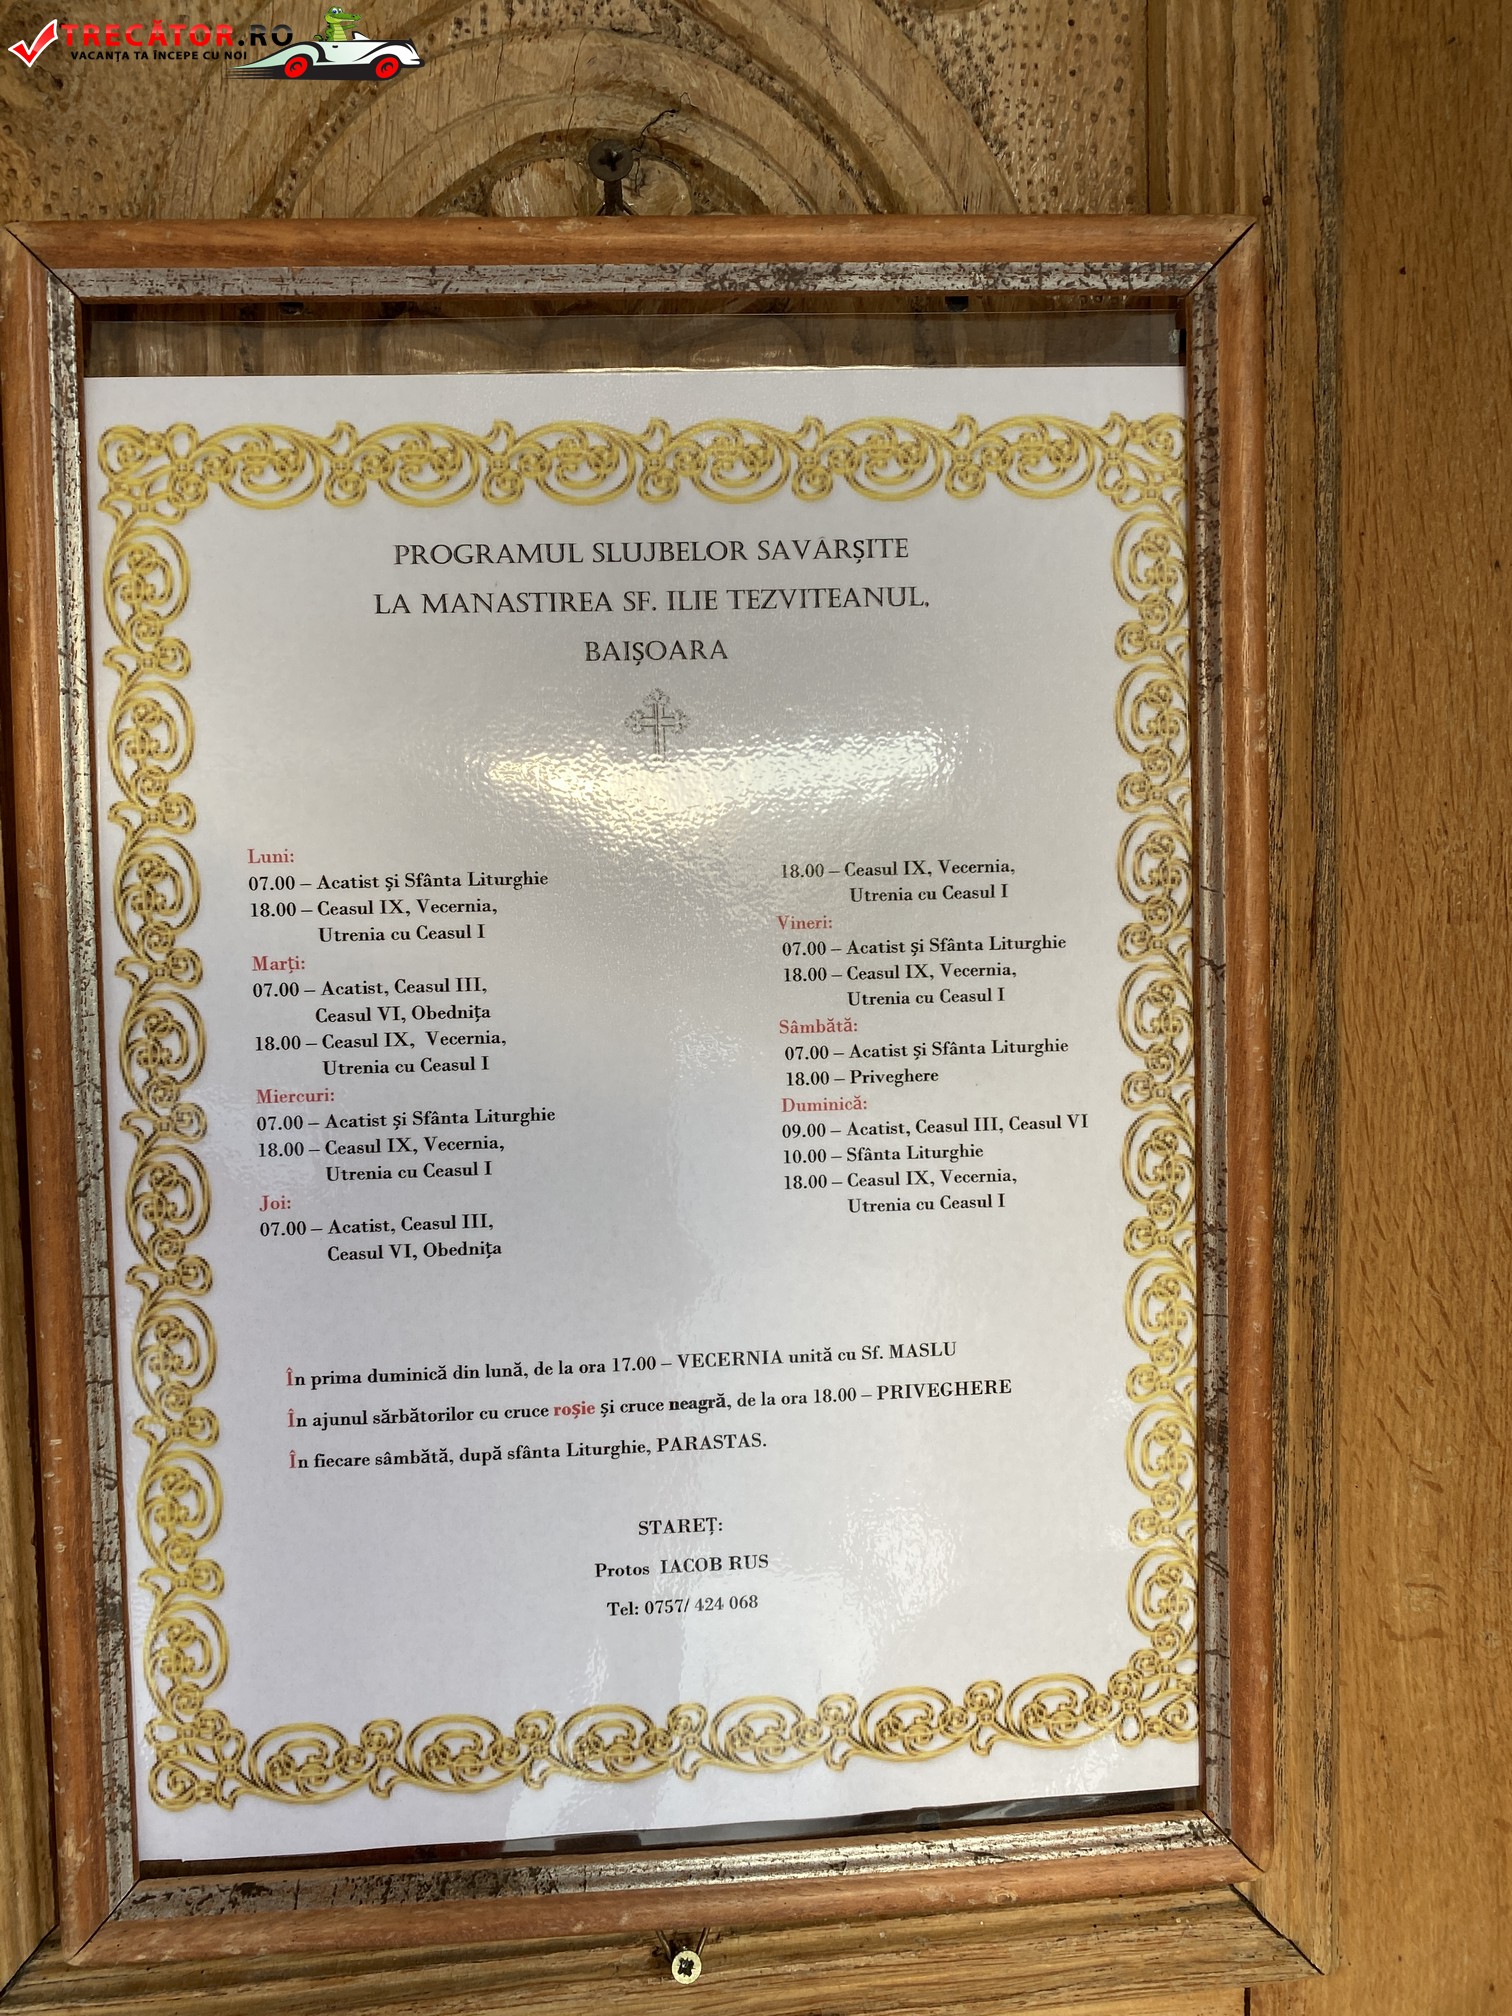 TRECĂTOR.RO
VACANȚA TA ÎNCEPE CU NOI
PROGRAMUL SLUJBELOR SAVÂRȘITE
LA MANASTIREA SF. ILIE TEZVITEANUL,
BAIȘOARA
Luni:
07.00 – Acatist și Sfânta Liturghie
18.00 – Ceasul IX, Vecernia,
Utrenia cu Ceasul I
Marți:
07.00 – Acatist, Ceasul III,
Ceasul VI, Obednița
18.00 – Ceasul IX, Vecernia,
Utrenia cu Ceasul I
Miercuri:
07.00 – Acatist și Sfânta Liturghie
18.00 – Ceasul IX, Vecernia,
Utrenia cu Ceasul I
Joi:
07.00 – Acatist, Ceasul III,
Ceasul VI, Obednița
18.00 – Ceasul IX, Vecernia,
Utrenia cu Ceasul I
Vineri:
07.00 – Acatist și Sfânta Liturghie
18.00 – Ceasul IX, Vecernia,
Utrenia cu Ceasul I
Sâmbătă:
07.00 – Acatist și Sfânta Liturghie
18.00 – Priveghere
Duminică:
09.00 – Acatist, Ceasul III, Ceasul VI
10.00 – Sfânta Liturghie
18.00 – Ceasul IX, Vecernia,
Utrenia cu Ceasul I
În prima duminică din lună, de la ora 17.00 – VECERNIA unită cu Sf. MASLU
În ajunul sărbătorilor cu cruce roșie și cruce neagră, de la ora 18.00 – PRIVEGHERE
În fiecare sâmbătă, după sfânta Liturghie, PARASTAS.
STAREȚ:
Protos IACOB RUS
Tel: 0757/ 424 068